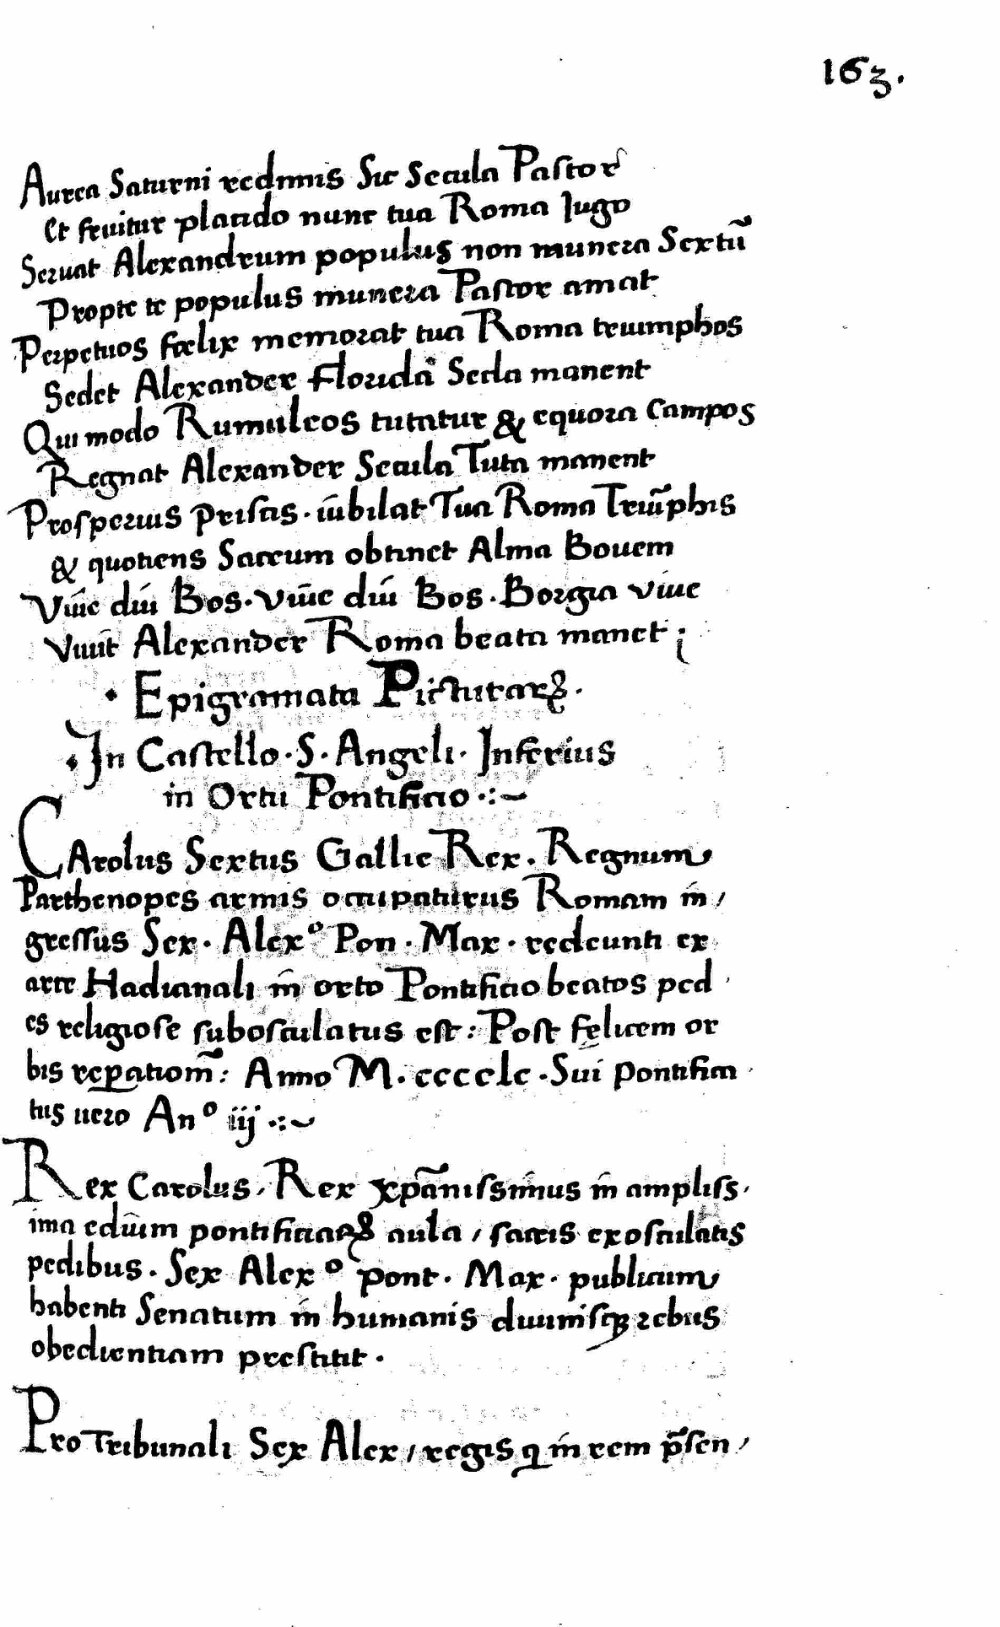 163.
Aurea Saturni redimis Sic Secula Pastor
Et fruitur placido nunc tua Roma Jugo
Seruat Alexandrum populus non munera Sextū
Propte te populus munera Pastor amat
Perpetuos fœlix memorat tua Roma triumphos
Sedet Alexander Florida Secla manent
Qui modo Rumuleos tutatur & equora Campos
Regnat Alexander Secula Tuta manent
Prosperius priscis. iūbilat Tua Roma Triūphis
& quotiens Sacrum obtinet Alma Bouem
Viūe diū Bos. viūe diū Bos. Borgia viue
Viuit Alexander Roma beata manet;
Epigramata Picturarꝝ.
In Castello. S. Angeli. Inferius
in Ortu Pontificio
CArolus Sextus Gallie Rex. Regnum
Parthenopes armis occupaturus Romam in/
gressus Sex. Alexº Pon. Max. redeunti ex
arce Hadrianali in orto Pontificio beatos ped
es religiose subosculatus est: Post felicem or
bis reꝑationē: Anno M. cccclc. Sui pontifica
tus uero Anº iij
Rex Carolus. Rex xpānissimus in ampliss.
ima edium pontificiarꝝ aula / sacris exosculatis
pedibus. Sex Alexº pont. Max. publicum
habenti Senatum in humanis diuinisqꝫ rebus
obedientiam prestitit.
Pro Tribunali Sex Alex / regis q in rem p̄sen /